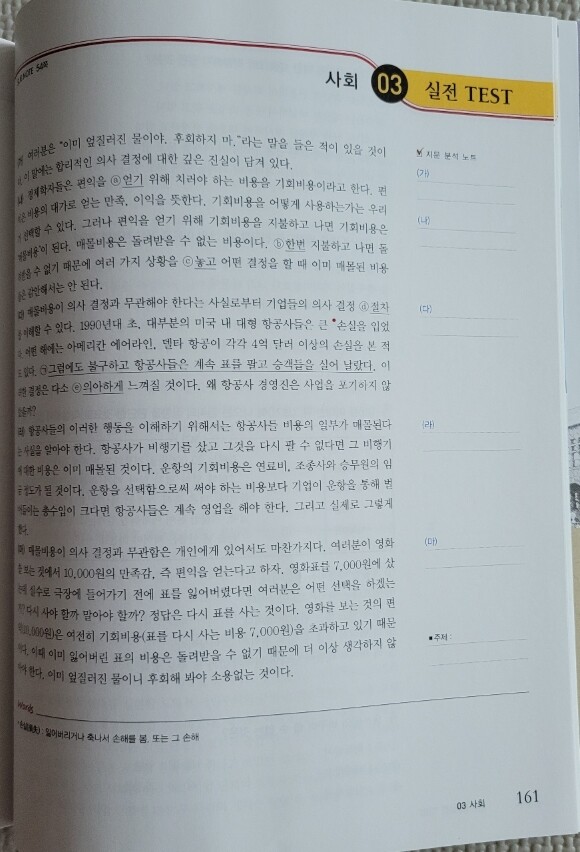 사회 03 실전 TEST
여러분은 "이미 엎질러진 물이야. 후회하지 마."라는 말을 들은 적이 있을 것이
이 말에는 합리적인 의사 결정에 대한 깊은 진실이 담겨 있다.
경제학자들은 편익을 ⓐ얻기 위해 치러야 하는 비용을 기회비용이라고 한다. 편
비용의 대가로 얻는 만족, 이익을 뜻한다. 기회비용을 어떻게 사용하는가는 우리
선택할 수 있다. 그러나 편익을 얻기 위해 기회비용을 지불하고 나면 기회비용은
매몰비용'이 된다. 매몰비용은 돌려받을 수 없는 비용이다. ⓑ한번 지불하고 나면 돌
수 없기 때문에 여러 가지 상황을 ⓒ놓고 어떤 결정을 할 때 이미 매몰된 비용
감안해서는 안 된다.
(다) 매몰비용이 의사 결정과 무관해야 한다는 사실로부터 기업들의 의사 결정 ⓓ절차
이해할 수 있다. 1990년대 초, 대부분의 미국 내 대형 항공사들은 큰 *손실을 입었
어떤 해에는 아메리칸 에어라인, 델타 항공이 각각 4억 달러 이상의 손실을 본 적
있다. ㉠그럼에도 불구하고 항공사들은 계속 표를 팔고 승객들을 실어 날랐다. 이
결정은 다소 ⓔ의아하게 느껴질 것이다. 왜 항공사 경영진은 사업을 포기하지 않
을까?
(라) 항공사들의 이러한 행동을 이해하기 위해서는 항공사들 비용의 일부가 매몰된다
는 사실을 알아야 한다. 항공사가 비행기를 샀고 그것을 다시 팔 수 없다면 그 비행기
에 대한 비용은 이미 매몰된 것이다. 운항의 기회비용은 연료비, 조종사와 승무원의 임
금 정도가 될 것이다. 운항을 선택함으로써 써야 하는 비용보다 기업이 운항을 통해 벌
어들이는 총수입이 크다면 항공사들은 계속 영업을 해야 한다. 그리고 실제로 그렇게
했다.
(마) 매몰비용이 의사 결정과 무관함은 개인에게 있어서도 마찬가지다. 여러분이 영화
를 보는 것에서 10,000원의 만족감, 즉 편익을 얻는다고 하자. 영화표를 7,000원에 샀
는데 실수로 극장에 들어가기 전에 표를 잃어버렸다면 여러분은 어떤 선택을 하겠는
가? 다시 사야 할까 말아야 할까? 정답은 다시 표를 사는 것이다. 영화를 보는 것의 편
익(10,000원)은 여전히 기회비용(표를 다시 사는 비용 7,000원)을 초과하고 있기 때문
이다. 이때 이미 잃어버린 표의 비용은 돌려받을 수 없기 때문에 더 이상 생각하지 않
아야 한다. 이미 엎질러진 물이니 후회해 봐야 소용없는 것이다.
Words
: 잃어버리거나 축나서 손해를 봄. 또는 그 손해
지문 분석 노트
(가)
(나)
(다)
(라)
(마)
■주제:
03 사회 161